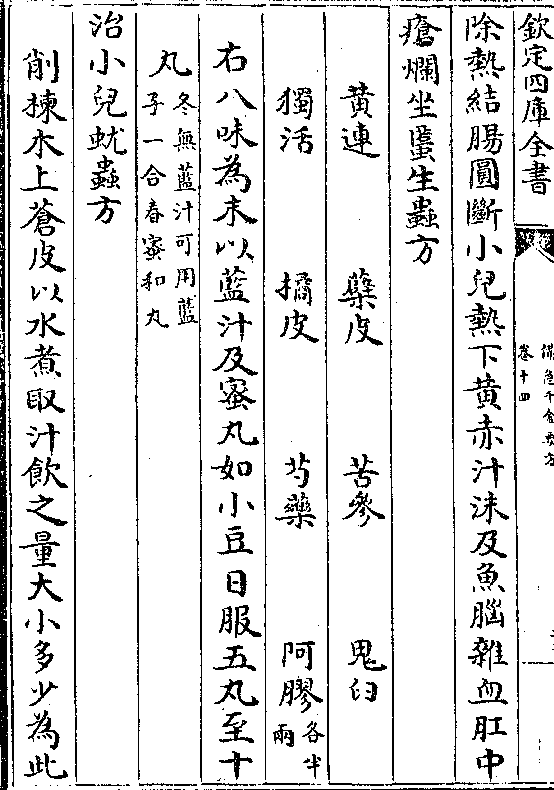 欽定四庫全書
備急千金要方
卷十四
除熱結腸圓斷小兒熱下黄赤汁沫及魚腦雜血肛中
瘡爛坐䘌生蟲方
黄連 蘗皮 苦參 鬼臼
獨活 橘皮 芍藥 阿膠各半兩
右八味為末以藍汁及蜜丸如小豆日服五丸至十
丸冬無藍汁可用藍子一合舂蜜和丸
治小兒蚘蟲方
削楝木上蒼皮以水煮取汁飲之量大小多少為此